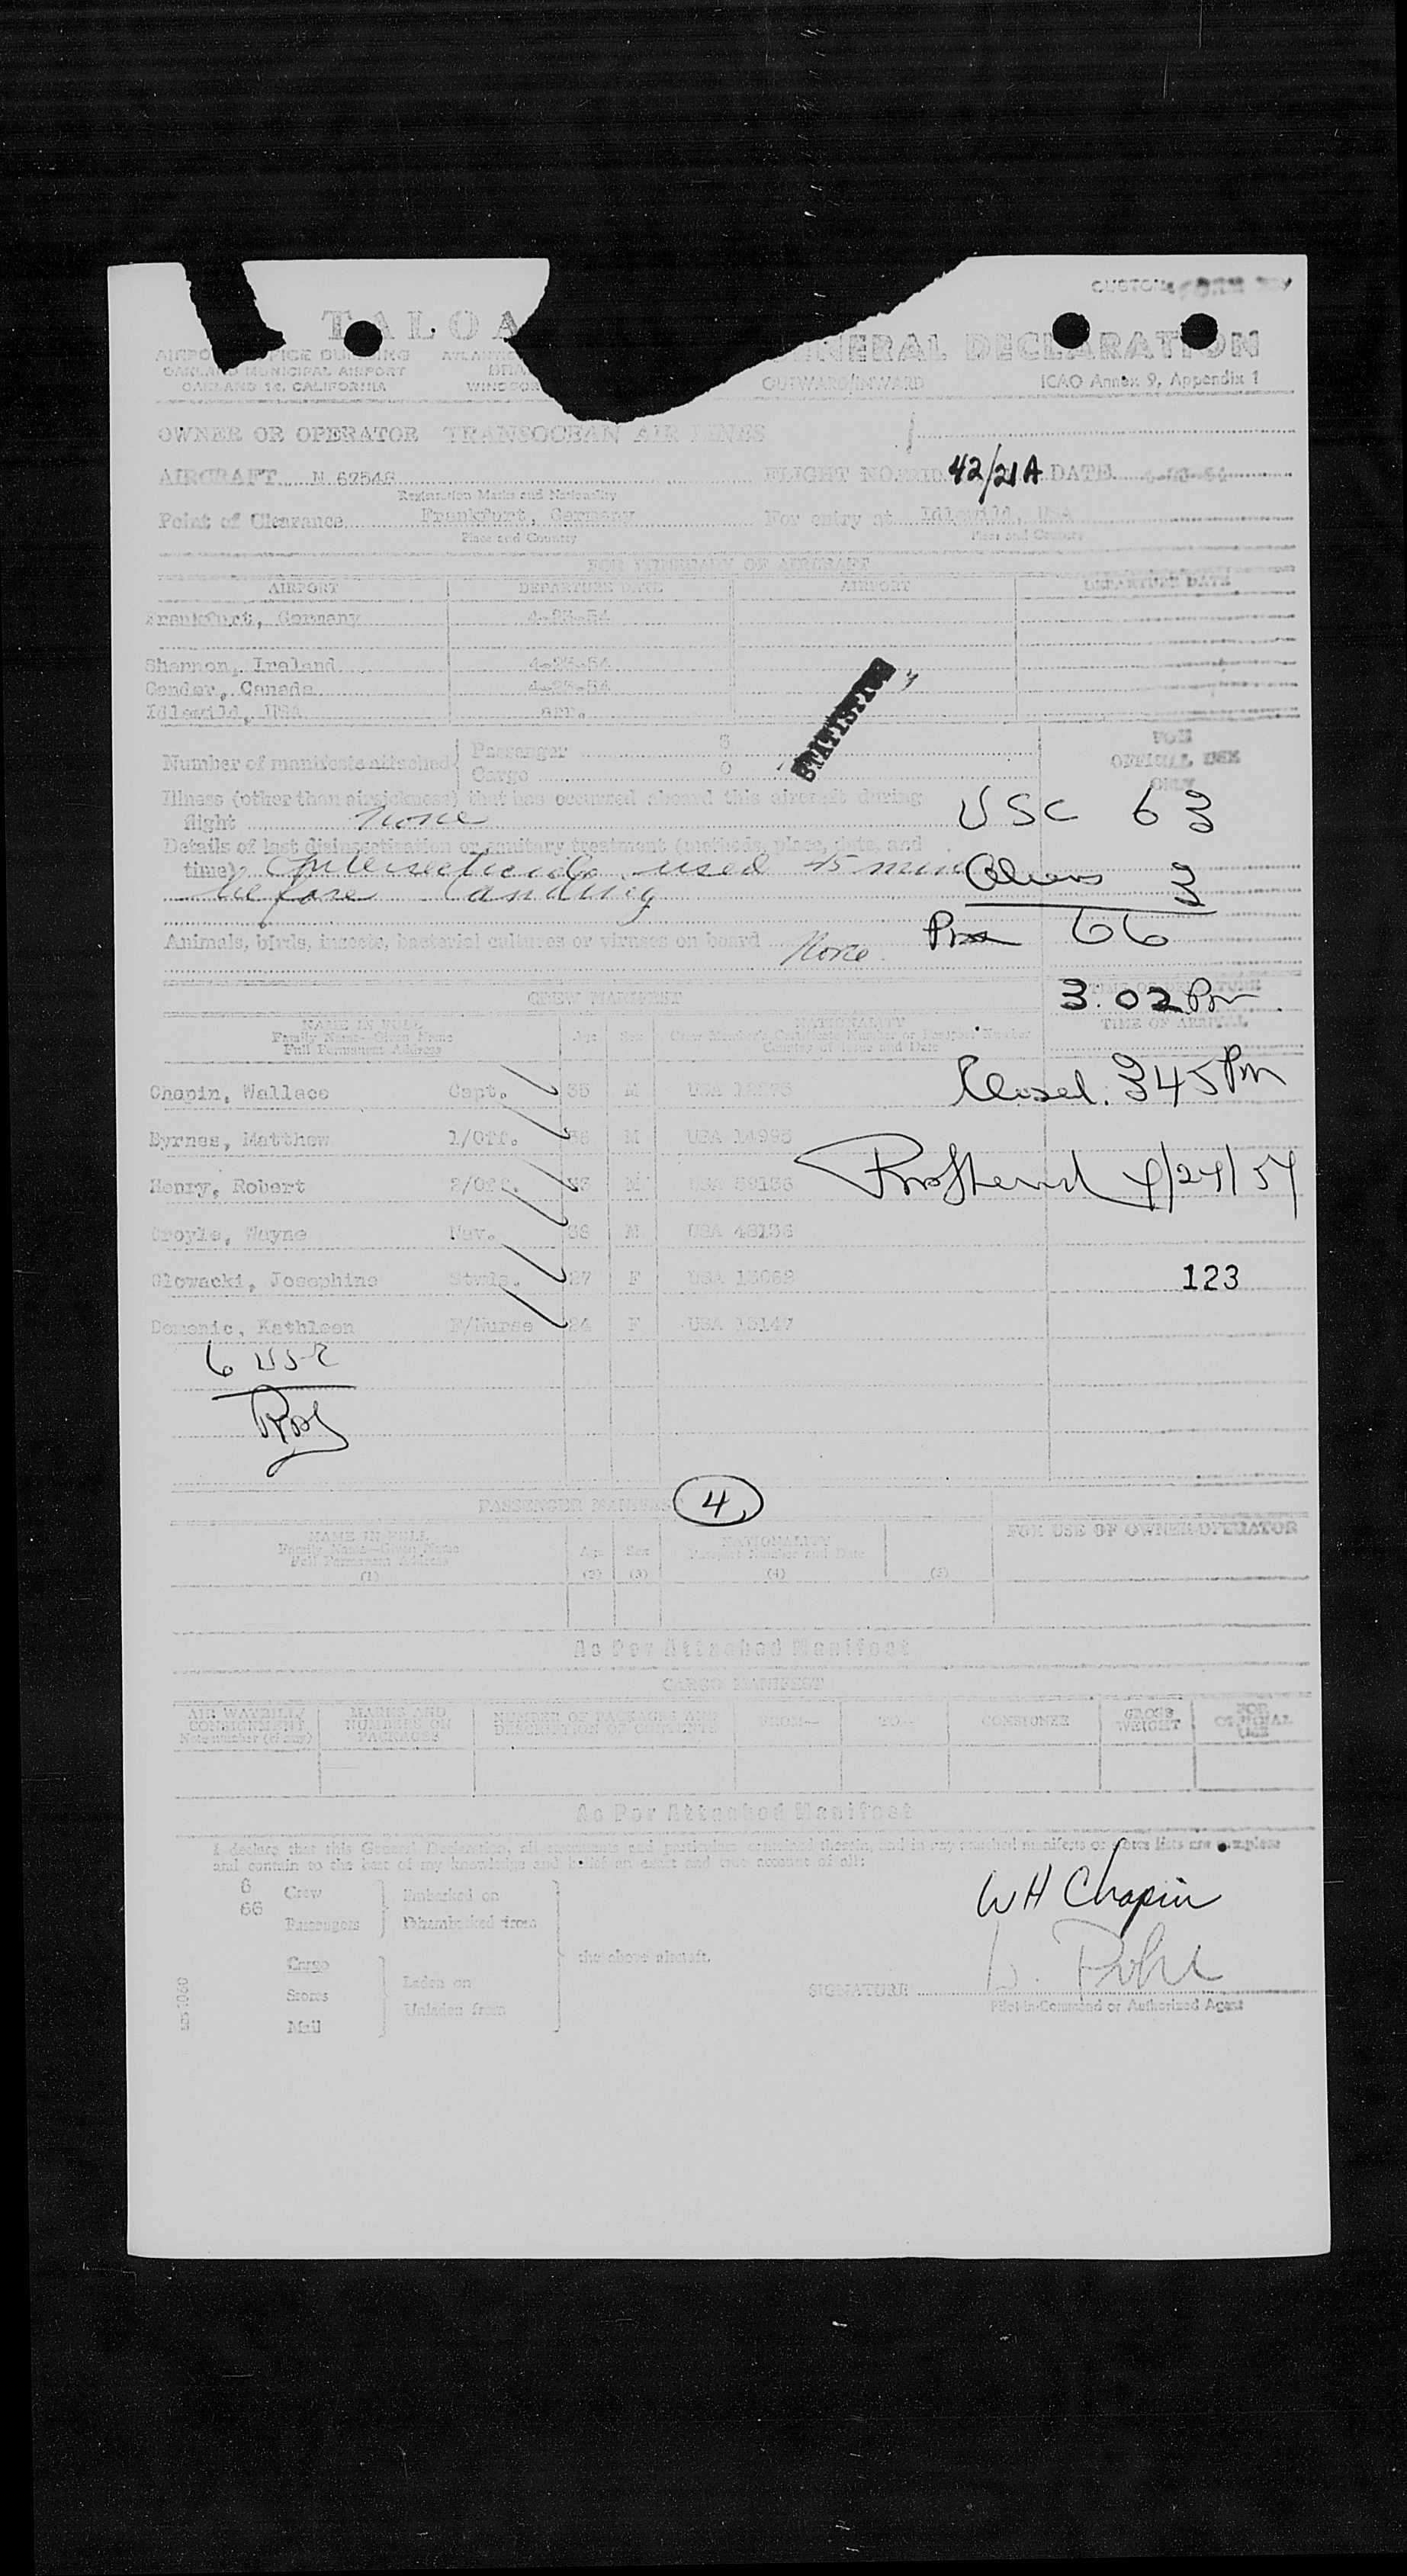 CUSTOMS
TALOA
GENERAL DECLARATION
OAKLAND MUNICIPAL AIRPORT
OAKLAND 14, CALIFORNIA
WINDSOR
OUTWARD/INWARD
ICAO Annex 9, Appendix 1
OWNER OR OPERATOR TRANSOCEAN AIR LINES
AIRCRAFT N 67548 FLIGHT NO. 42/21A DATE 4-23-54
Registration Marks and Nationality
Point of Clearance Frankfurt, Germany For entry at Idlewild, USA
Place and Country Place and Country
AIRPORT DEPARTURE DATE AIRPORT DEPARTURE DATE
Frankfurt, Germany 4-23-54
Shannon, Ireland 4-23-54
Gander, Canada 4-23-54
Idlewild, USA arr.
STATISTICS
Number of manifests attached Passenger
Cargo 0
FOR
OFFICIAL USE
ONLY
Illness (other than airsickness) that has occurred aboard this aircraft during
flight None
USC 63
Details of last disinsectisation or sanitary treatment (methods, place, date, and
time) used 45 min
before landing
Aliens 3
66
Animals, birds, insects, bacterial cultures or viruses on board None.
3.02 Pm
CREW MANIFEST
TIME OF ARRIVAL
NAME IN FULL Age Sex NATIONALITY
Family Name—Given Name
Full Permanent Address Country of Issue and Date
Closed. 345 Pm
Chapin, Wallace Capt. 35 M USA
Byrnes, Matthew 1/Off. 36 M USA 14995
Henry, Robert 2/Off. M USA 39136
4/24/54
Croyle, Wayne Nav. 36 M USA 48136
Glowacki, Josephine Stwds. 27 F USA 13062
123
Domenic, Kathleen F/Nurse 24 F USA 15147
6 USC
PASSENGER MANIFEST 4
NAME IN FULL Age Sex NATIONALITY FOR USE OF OWNER-OPERATOR
Family Name—Given Name Passport Number and Date
Full Permanent Address
(1) (2) (3) (4) (5)
As Per Attached Manifest
CARGO MANIFEST
AIR WAYBILL/ MARKS AND NUMBER OF PACKAGES AND FROM— TO— CONSIGNEE GROSS FOR
CONSIGNMENT NUMBERS ON DESCRIPTION OF CONTENTS WEIGHT OFFICIAL
Note number (if any) PACKAGES USE
As Per Attached Manifest
I declare that this General Declaration, all statements and particulars contained therein, and in any attached manifests or stores lists are complete
and contain to the best of my knowledge and belief an exact and true account of all:
6 Crew Embarked on
66 Passengers Disembarked from
the above aircraft.
Cargo
Stores Laden on
Mail Unladen from
WH Chapin
SIGNATURE
Pilot-in-Command or Authorized Agent